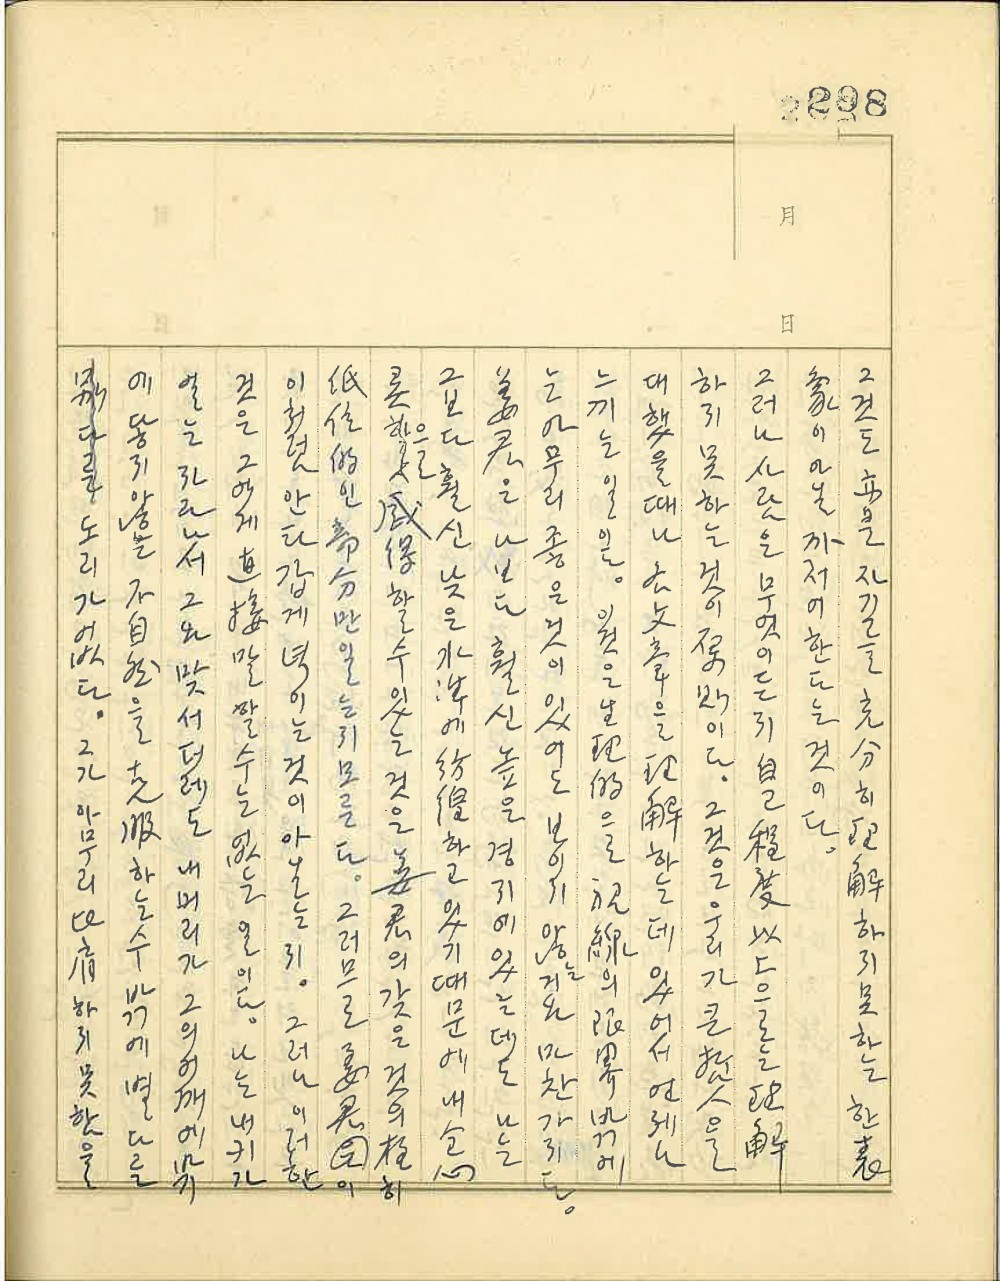 298
月
日
그것도 亦是 자기를 充分히 理解하지 못하는 한 表
象이 아닐까 저어한다는 것이다.
그러나 사람은 무엇이든지 自己 程度 以上으로는 理解
하지 못하는 것이 原則이다. 그것은 우리가 큰 哲人을
대했을 때나 古文章을 理解하는데 있어서 언제나
느끼는 일일다. 이것은 生理的으로 視線의 限界 밖에
는 아무리 좋은 것이 있어도 보이지 않는 거와 마찬가지다.
姜君은 나보다 훨신 높은 경지에 있는데도 나는
그보다 훨신 낮은 水準에 彷徨하고 있기 때문에 내 全心
으로 感得할 수 있는 것은 姜君의 갖은 것의 極히
低位的인 部分만일는지 모른다. 그러므로 姜君이
이처럼 안타갑게 녁이는 것이 아닐는지. 그러나 이러한
것은 그에게 直接 말할 수는 없는 일이다. 나는 내 키가
얼는 자라나서 그와 맞서더래도 내 머리가 그의 어깨에 밖
에 닿지 않는 不自然을 克服하는 수 밖에 별다를
도리가 없다. 그가 아무리 比肩하지 못함을